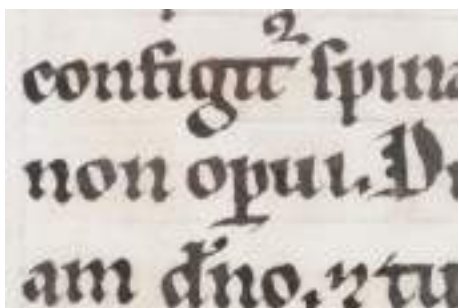 configit᷑ ſpina
non oꝑui. Di
am dn̄o. ⁊ tu